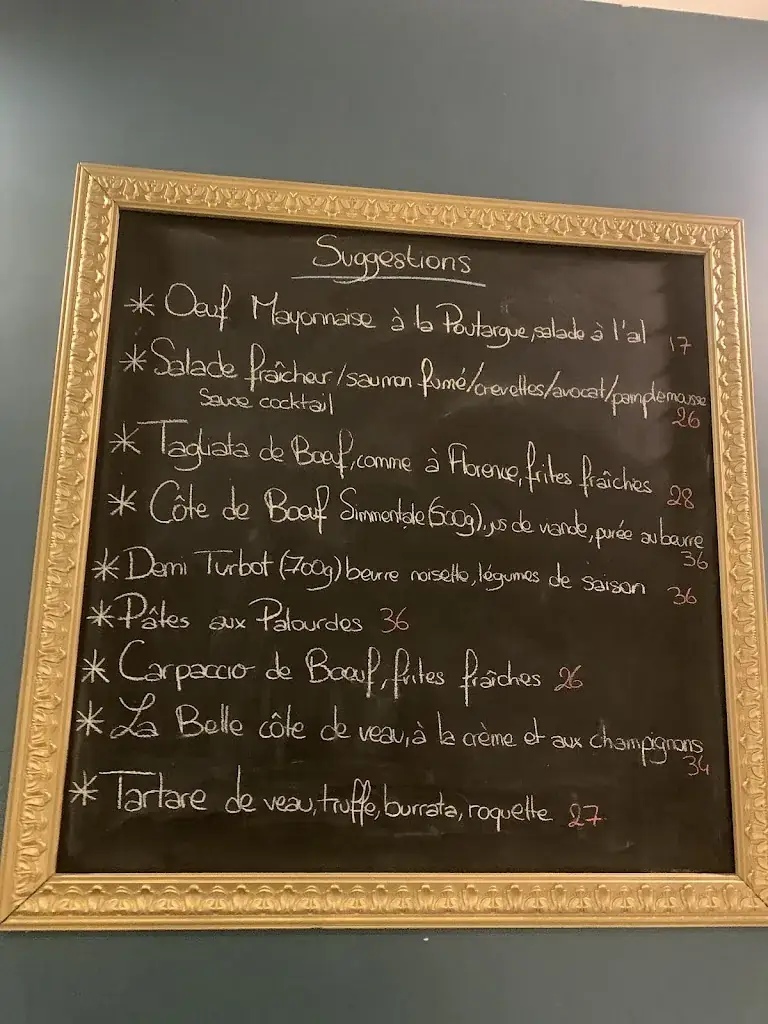 Suggestions
* Oeuf Mayonnaise à la Poutargue, salade à l'ail 17
* Salade fraîcheur/saumon fumé/crevettes/avocat/pamplemousse
Sauce cocktail 26
* Tagliata de Boeuf, comme à Florence, frites fraîches 28
* Côte de Boeuf Simmentale (500g), jus de viande, purée au beurre
36
* Demi Turbot (700g) beurre noisette, légumes de saison 36
* Pâtes aux Palourdes 36
* Carpaccio de Boeuf, frites fraîches 26
* La Belle côte de veau, à la crème et aux champignons
34
* Tartare de veau, truffe, burrata, roquette 27